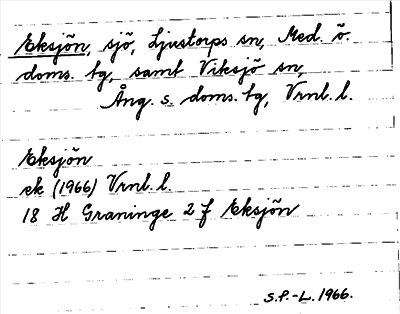 Eksjön, sjö, Ljustorps sn, Med. ö.
doms. tg, samt Viksjö sn,
Ång. s. doms. tg, Vrnl. l.
Eksjön
ek (1966) Vrnl. l.
18 H Graninge 2 f Eksjön
S.P.-L. 1966.